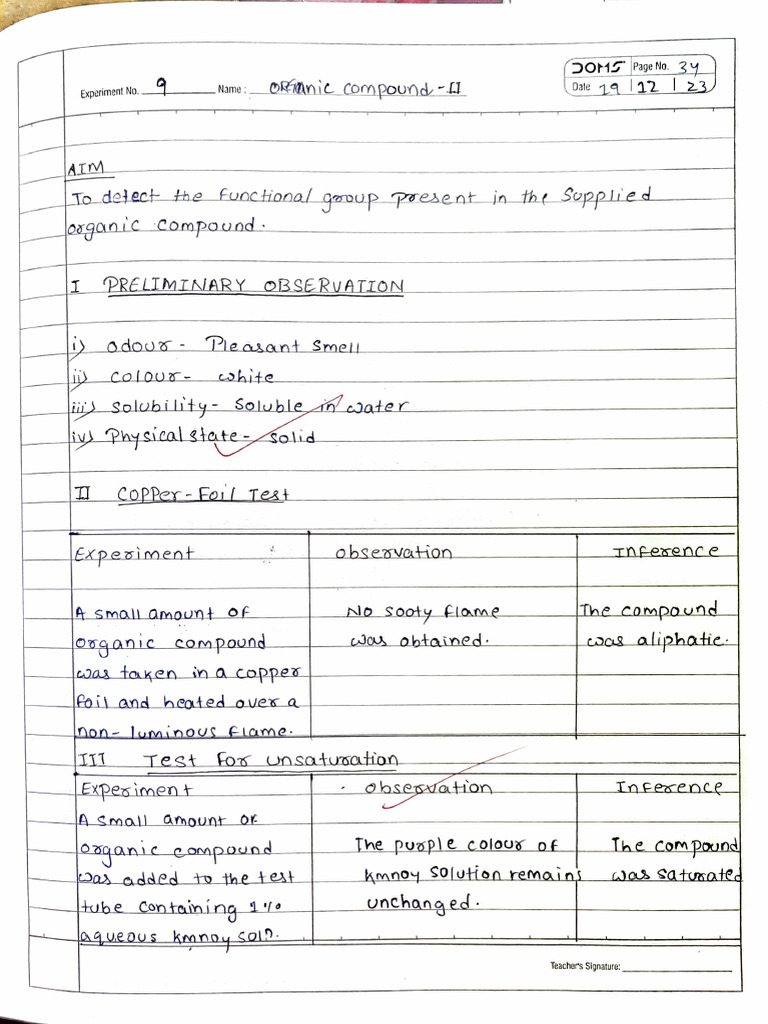 DOMS Page No. 34
Experiment No. 9 Name : Organic compound - II
Date 19 | 12 | 23
AIM
To detect the functional group present in the supplied
organic compound.
I PRELIMINARY OBSERVATION
i) odour - Pleasant smell
ii) colour - white
iii) solubility - soluble in water
iv) Physical state - solid
II Copper - Foil Test
Experiment observation Inference
A small amount of No sooty flame The compound
organic compound was obtained. was aliphatic.
was taken in a copper
foil and heated over a
non-luminous flame.
III Test for unsaturation
Experiment observation Inference
A small amount of
organic compound The purple colour of The compound
was added to the test kmnoy solution remains was saturated
tube containing 1% unchanged.
aqueous kmnoy solⁿ.
Teacher's Signature: